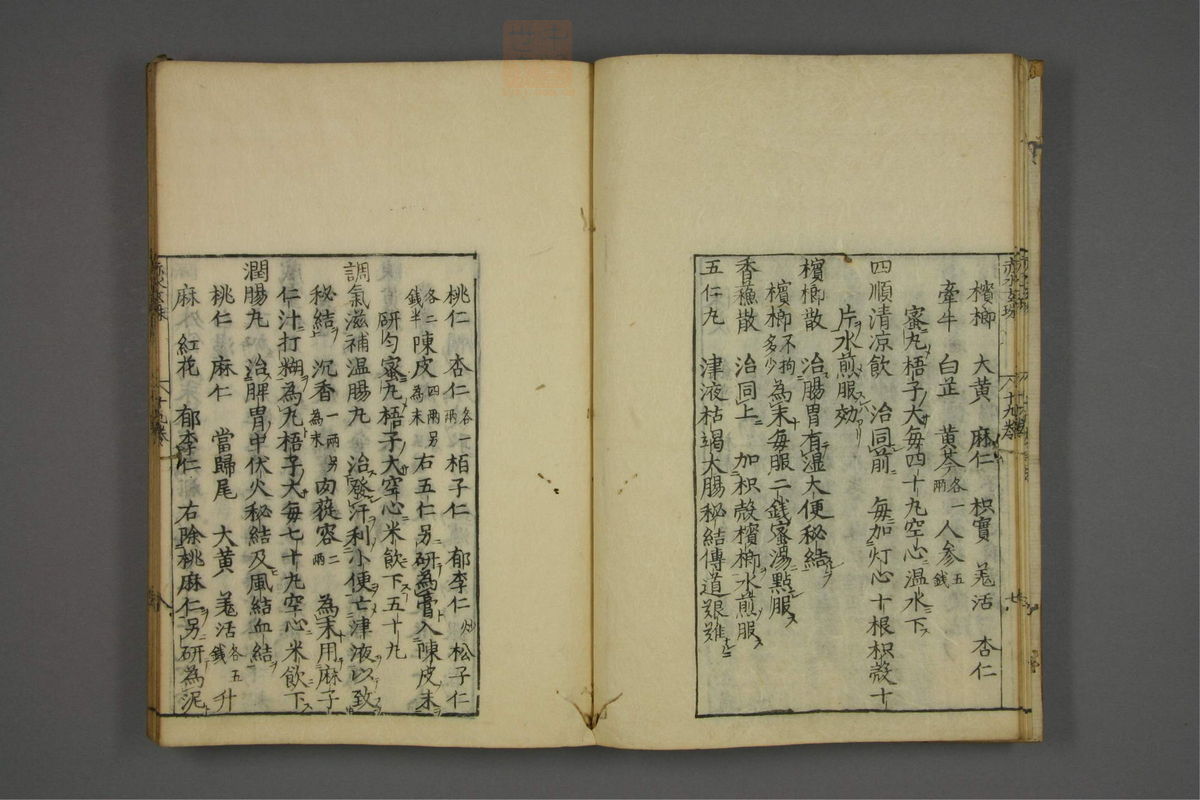 檳榔 大黄 麻仁 枳實 羗活 杏仁
牽牛 白芷 黄芩各一兩 人参五銭
蜜丸梧子大毎四十丸空心温水下
四順清凉飲 治同前 毎加灯心十根枳殻十
片水煎服効
檳榔散 治腸胃有湿大便秘結
檳榔不拘多少 為末毎服二銭蜜湯點服
香蘓散 治同上 加枳殻檳榔水煎服
五仁丸 津液枯竭大腸秘結傳道艱難
桃仁 杏仁各一兩 栢子仁 郁李仁炒 松子仁
各二銭半 陳皮四兩另為末 右五仁另研為膏入陳皮末
研匀蜜丸梧子大空心米飲下五十丸
調氣滋補温腸丸 治發汗利小便亡津液以致
秘結 沉香一兩另為末 肉蓯容二兩 為末用麻子
仁汁打糊為丸梧子大毎七十丸空心米飲下
潤腸丸 治脾胃中伏火秘結及風結血結
桃仁 麻仁 當歸尾 大黄 羗活各五銭 升
麻 紅花 郁李仁 右除桃麻仁另研為泥